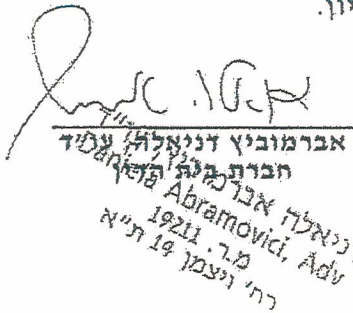 יון.
אברמוביץ דניאלה, עו"ד
חברת בית הדין
דניאלה אברמוביץ, עו"ד
Daniela Abramovici, Adv
מ.ר. 19211
רח' ויצמן 19 ת"א